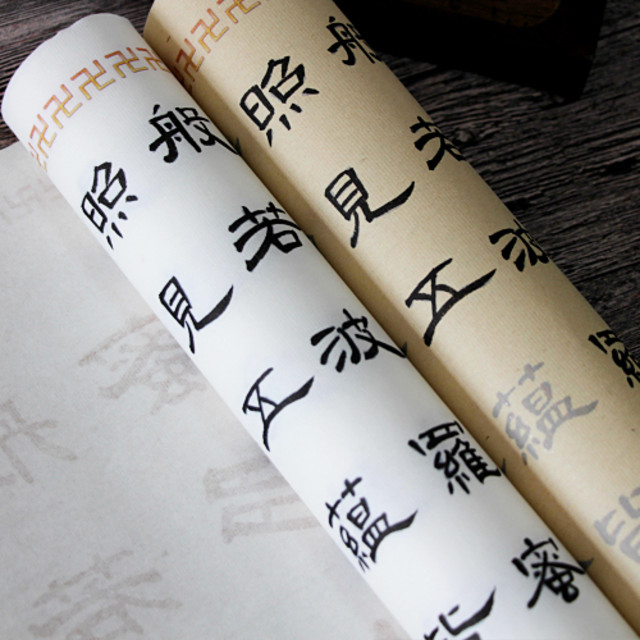 般若波羅
照見五蘊皆
般若波羅蜜
照見五蘊